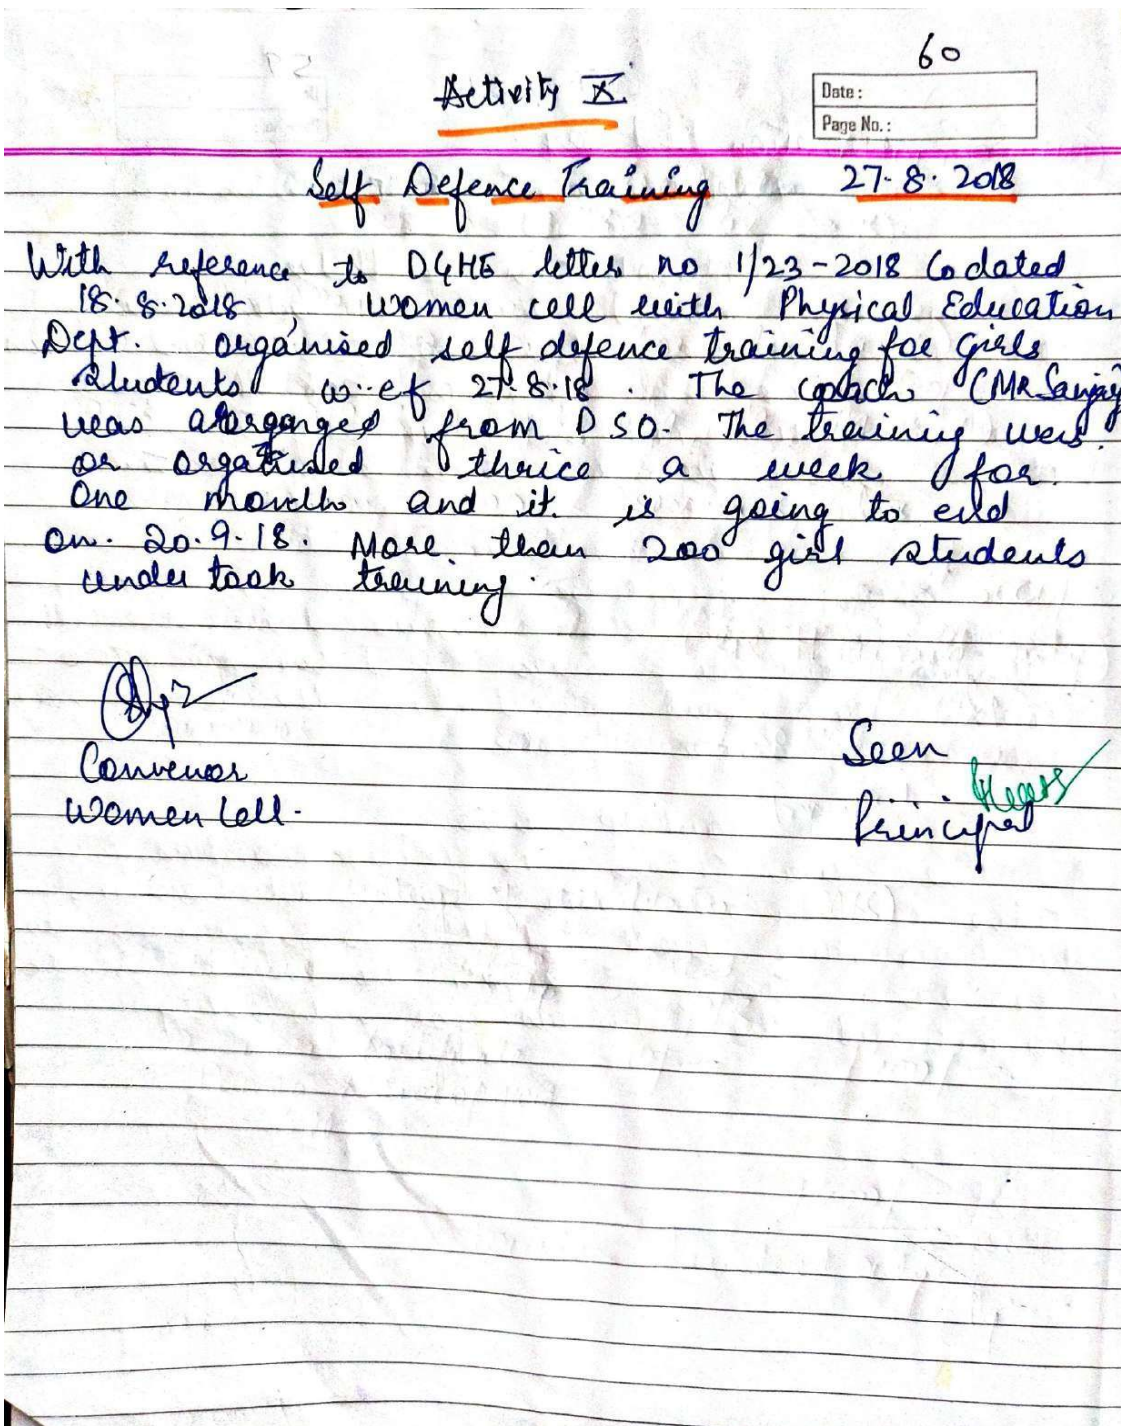 60
Activity X
Date :
Page No. :
Self Defence Training 27.8.2018
With reference to DGHE letter no 1/23-2018 Co dated
18.8.2018, Women cell with Physical Education
Dept. organised self defence training for Girls
Students w.ef 27.8.18. The coach (Mr Sanjay)
was from DSO. The training was
or organised thrice a week for
One month and it is going to end
on. 20.9.18. More than 200 girl students
under took training.
Convenor
Women Cell.
Seen
Principal